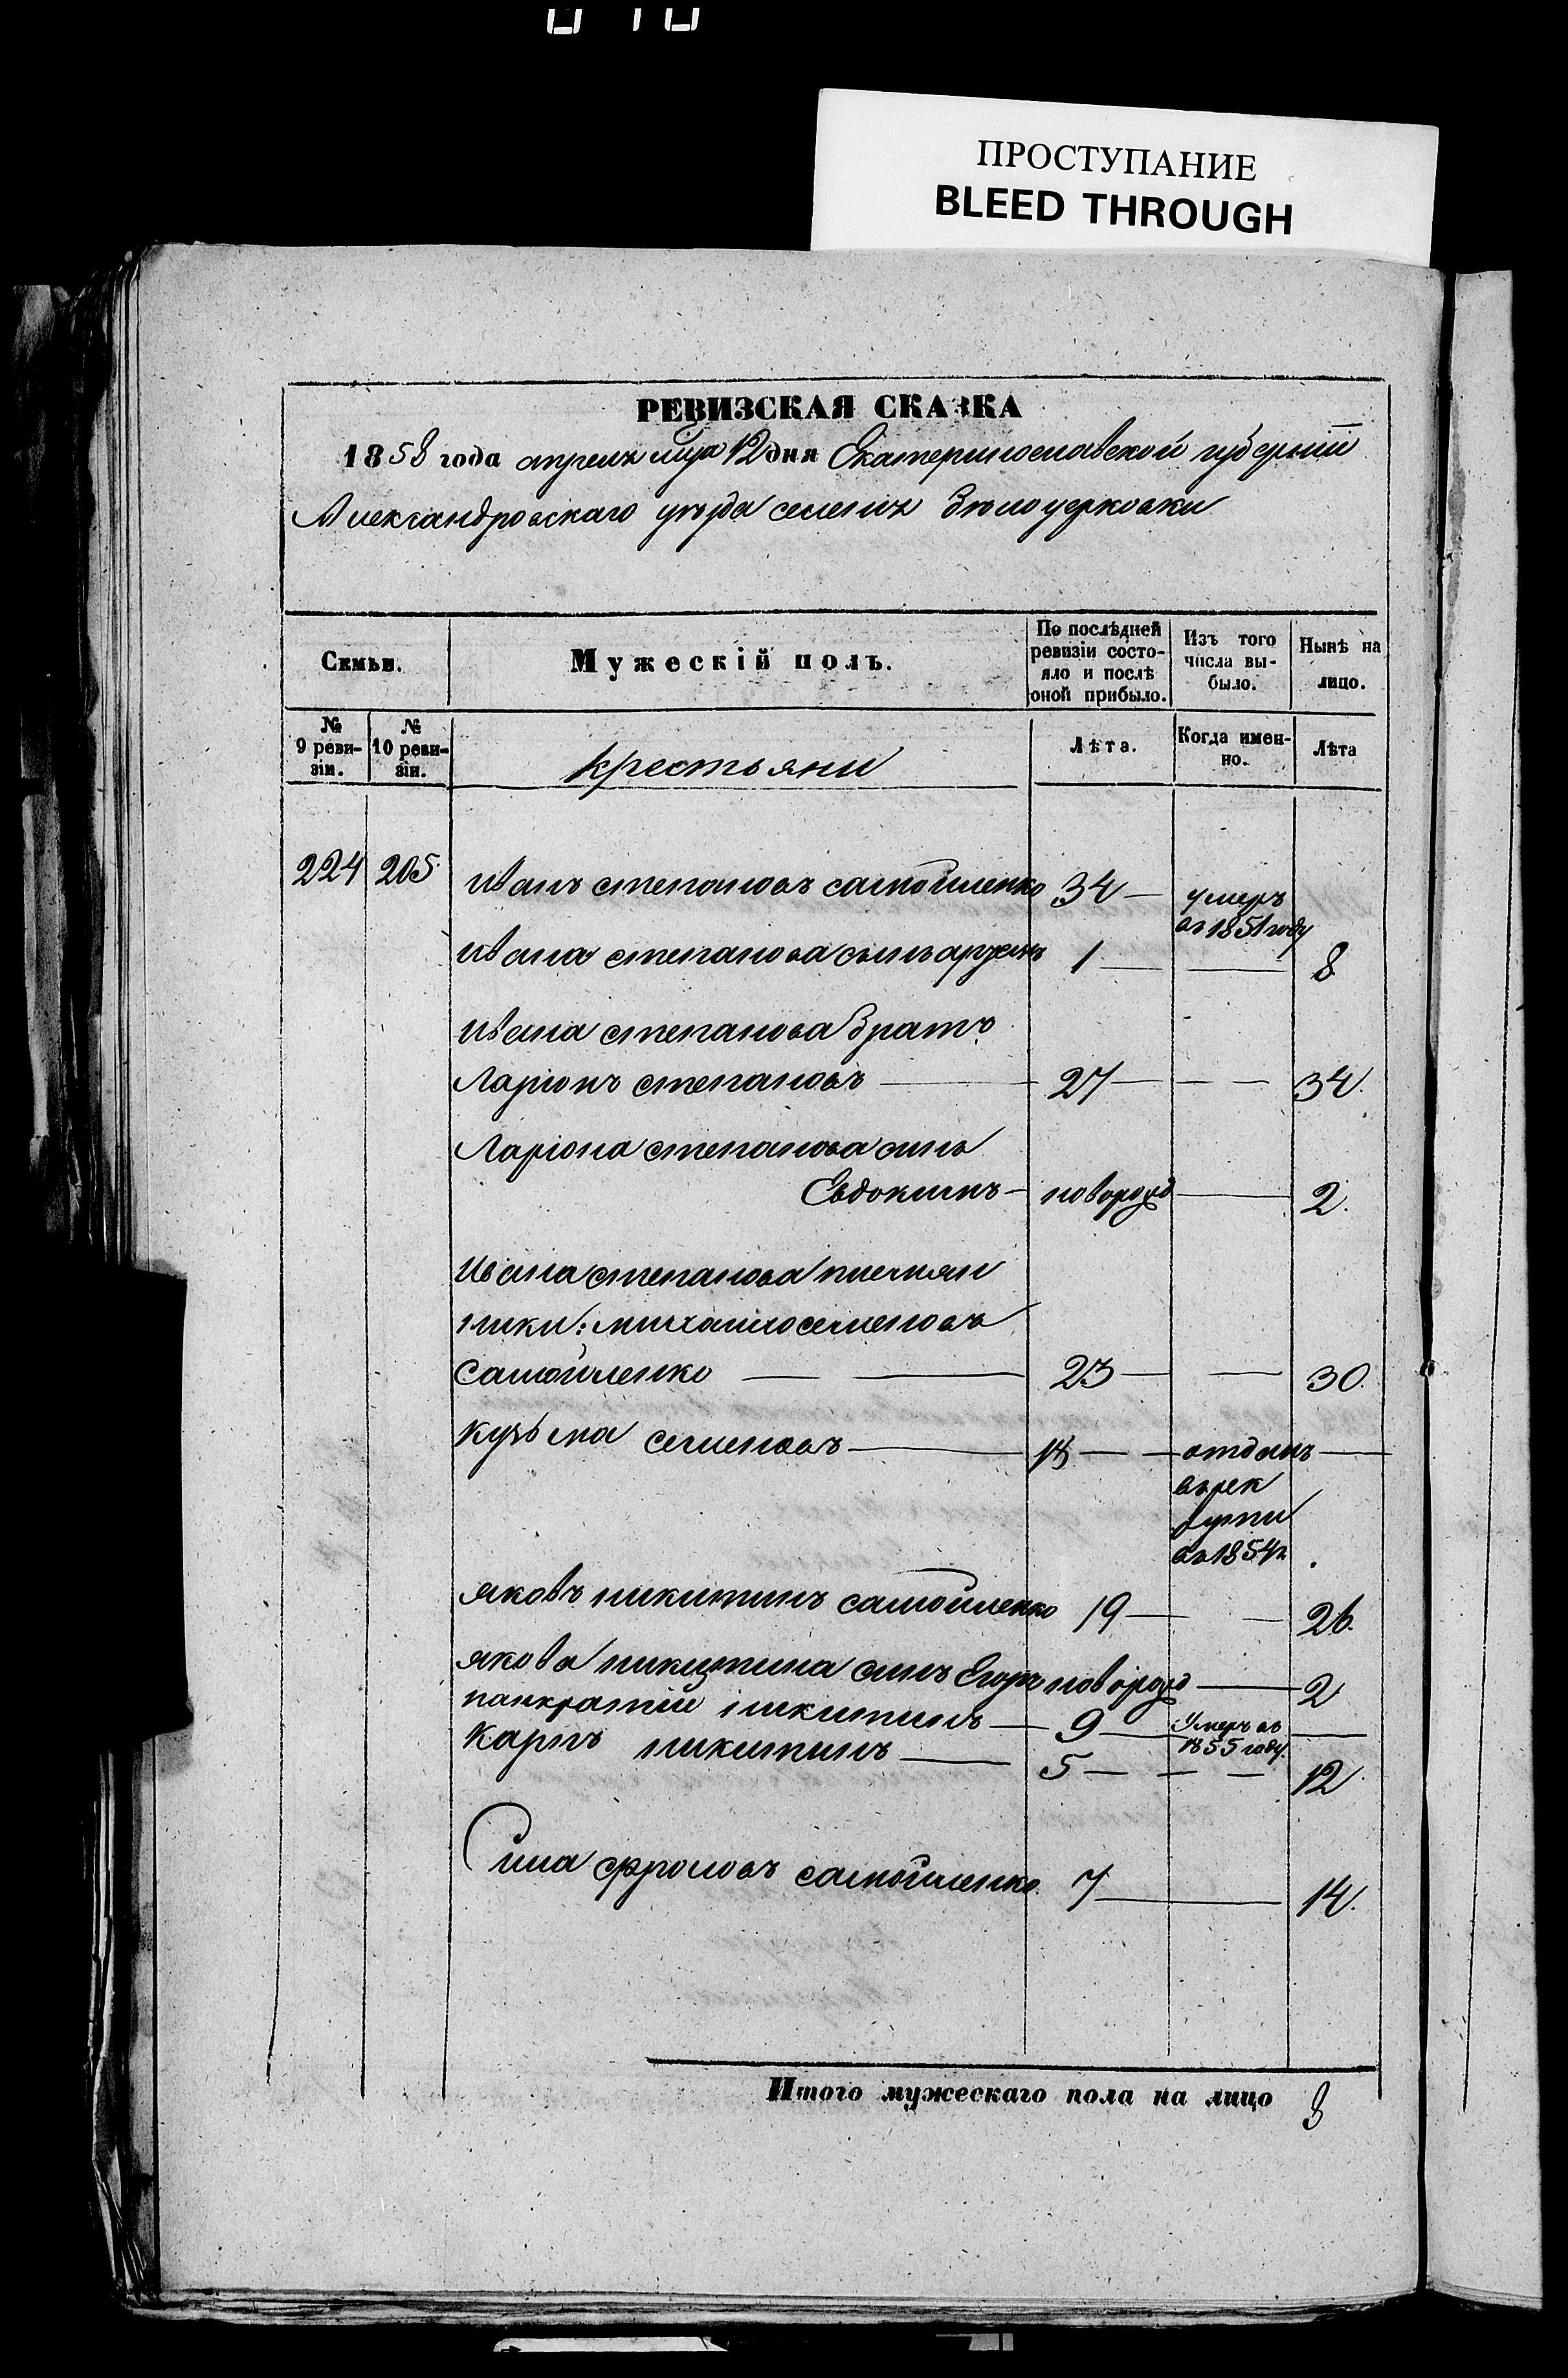 ПРОСТУПАНИЕ
BLEED THROUGH
РЕВИЗСКАЯ СКАЗКА
1858 года апреля мца 12 дня Екатеринославской губерніи
Александровскаго уѣзда селенія Бѣлоцерковки
Семьи.
Мужескій полъ.
По послѣдней ревизіи состо-
яло и послѣ оной прибыло.
Изъ того числа вы-
было.
Нынѣ на лицо.
№ 9 реви-
зіи.
№ 10 реви-
зіи.
крестьяни
Лѣта.
Когда имен-
но.
Лѣта
224 205 иванъ степановъ самойленко 34 умеръ
въ 1851 году
ивана степанова сынъ 1 8
ивана степанова братъ
Ларіонъ степановъ 27 34.
Ларіона степанова синъ
Евдокимъ новорожд 2.
Ивана степанова племян
ники: михайло семеновъ
самойленко 23 30.
кузьма семеновъ 18 отданъ
въ рек
рути
въ 1854 г.
яковъ никитинъ самойленко 19 26.
якова никитина синъ Егоръ новорожд 2
панкратій никитинъ 9 Умеръ въ
1855 году.
Карпъ никитинъ 5 12
Сила фроловъ самойленко 7 14.
Итого мужескаго пола на лицо 8